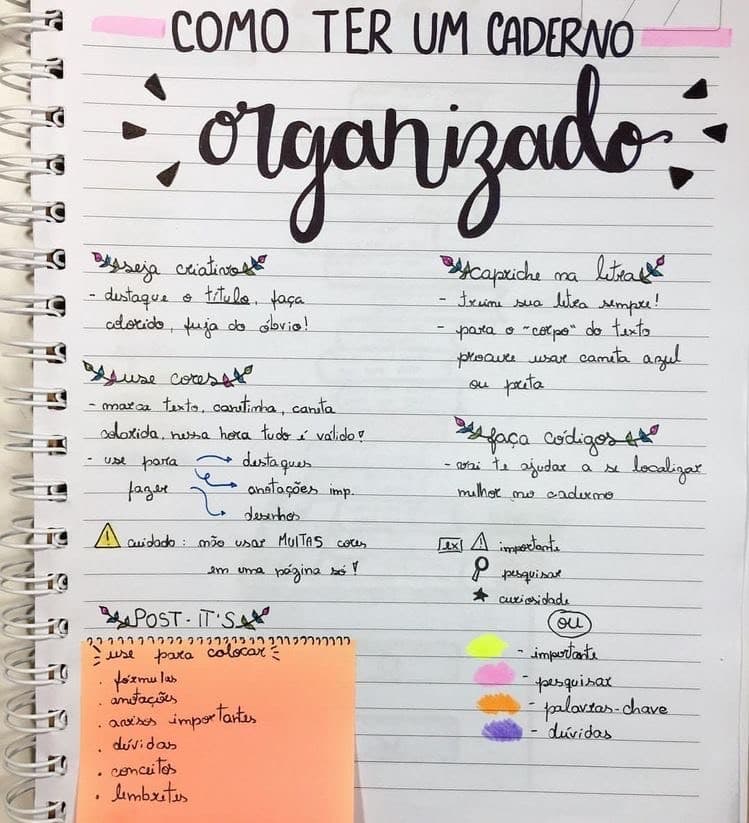 COMO TER UM CADERNO
organizado
seja criativo
- destaque o título, faça
colorido, fuja do óbvio!
use cores
- marca texto, canetinha, caneta
colorida, nessa hora tudo é válido!
- use para → destaques
fazer → anotações imp.
→ desenhos
cuidado: não usar MUITAS cores
em uma página só!
POST-IT'S
use para colocar
· fórmulas
· anotações
· avisos importantes
· dúvidas
· conceitos
· lembretes
capriche na letra
- treine sua letra sempre!
- para o "corpo" do texto
procure usar caneta azul
ou preta
faça códigos
- vai te ajudar a se localizar
melhor no caderno
ex ! importante
pesquisar
★ curiosidade
ou
- importante
- pesquisar
- palavras-chave
- dúvidas